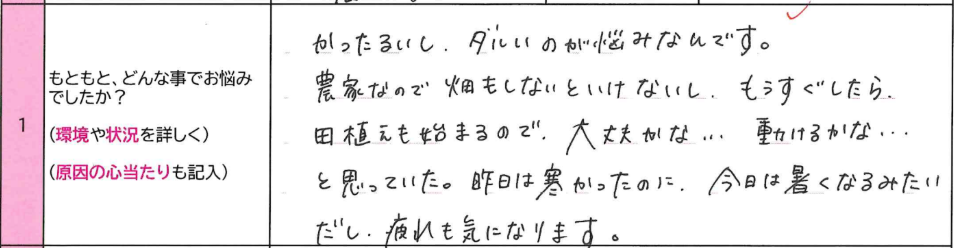 1
もともと、どんな事でお悩み
でしたか？
（環境や状況を詳しく）
（原因の心当たりも記入）
かったるいし、ダルいのが悩みなんです。
農家なので畑もしないといけないし、もうすぐしたら、
田植えも始まるので、大丈夫かな… 動けるかな…
と思っていた。昨日は寒かったのに、今日は暑くなるみたい
だし、疲れも気になります。